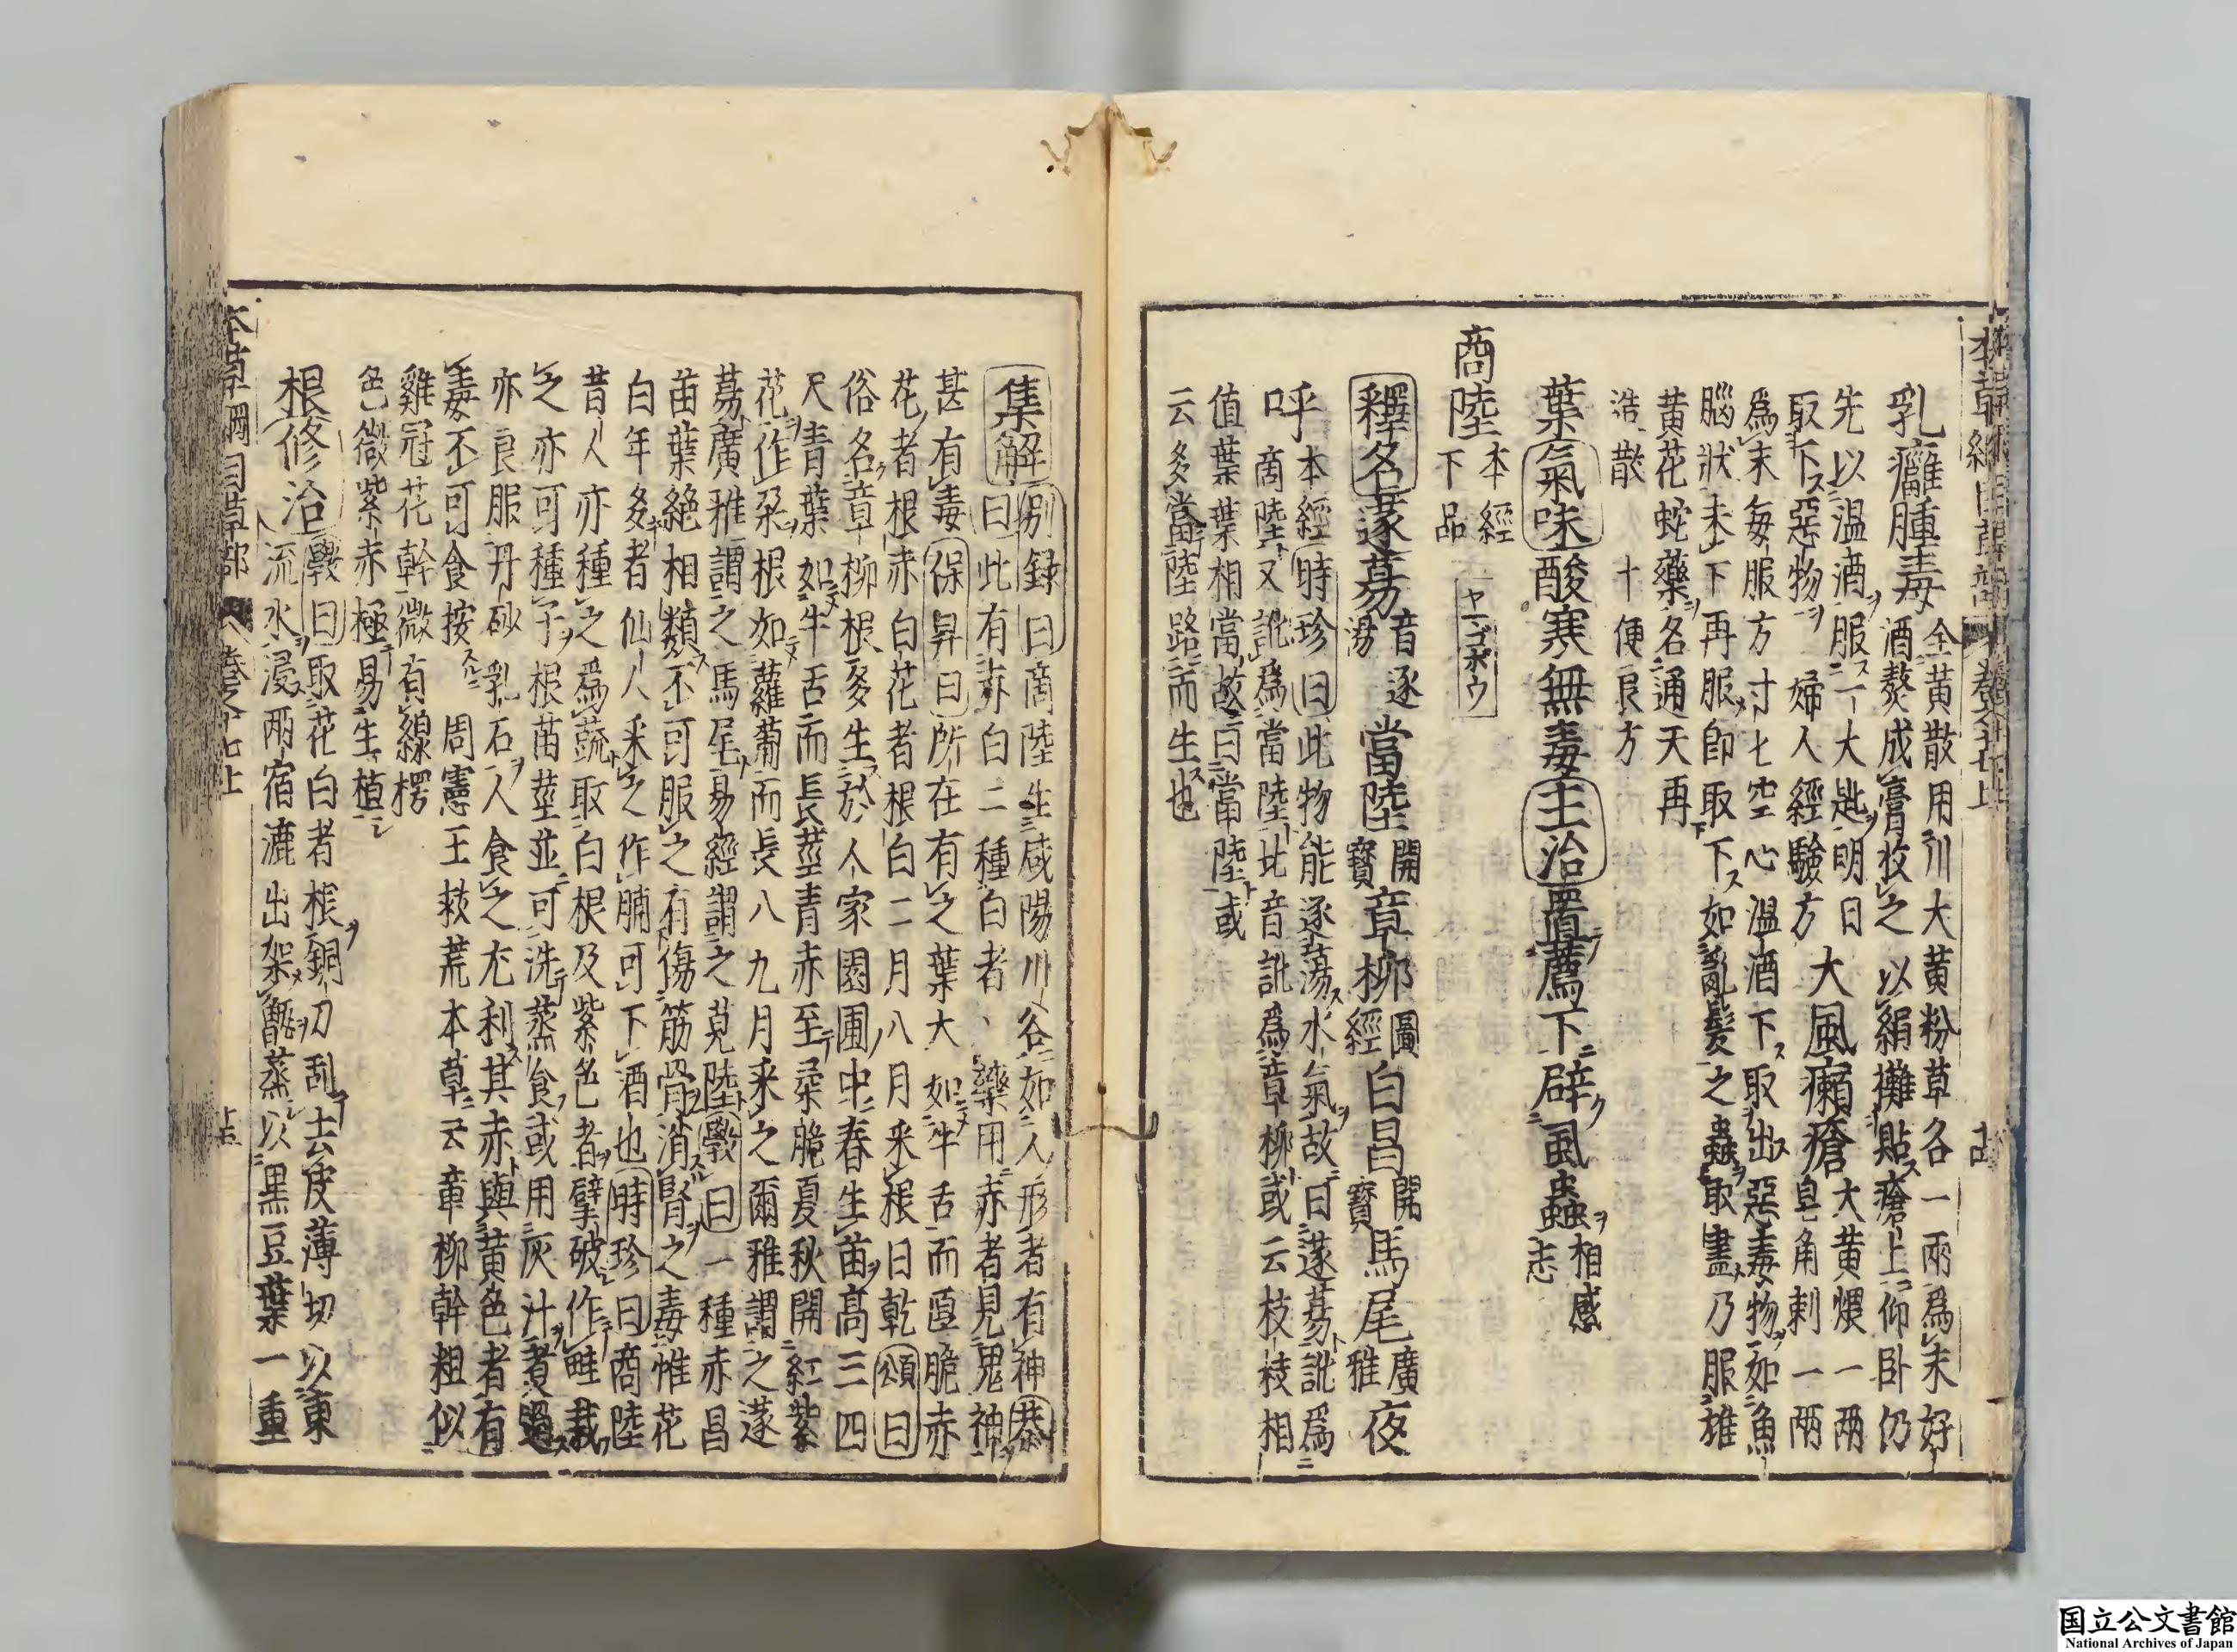 本草綱目草部 卷之十七上 十四
乳癰腫毒 金黄散用川大黄粉草各一兩爲末好
酒熬成膏收之以絹攤貼瘡上仰卧仍
先以温酒服一大匙明日
取下惡物 婦人經驗方 大風癩瘡 大黄煨一兩
皂角刺一兩
爲末毎服方寸匕空心温酒下取出惡毒物如魚
腦狀未下再服即取下如亂髮之蟲取盡乃服雄
黄花蛇藥名通天再
造散 十便良方
葉氣味酸寒無毒主治置薦下辟虱蟲 相感
志
商陸 本經
下品 ヤマゴボウ
釋名蓫蒻 音逐
湯 當陸 開
寶 章柳 圖
經 白昌 開
寶 馬尾 廣
雅 夜
呼 本經 時珍曰此物能逐蕩水氣故曰蓫蒻訛爲
商陸又訛爲當陸北音訛爲章柳或云枝枝相
值葉葉相當故曰當陸或
云多當陸路而生也
集解 別録曰商陸生咸陽川谷如人形者有神恭
曰此有赤白二種白者入藥用赤者見鬼神
甚有毒保昇曰所在有之葉大如牛舌而直脆赤
花者根赤白花者根白二月八月采根日乾頌曰
俗名章柳根多生於人家園圃中春生苗高三四
尺青葉如牛舌而長莖青赤至柔脆夏秋開紅紫
花作朶根如蘿蔔而長八九月采之爾雅謂之蓫
蒻廣雅謂之馬尾易經謂之莧陸斅曰一種赤昌
苗葉絶相類不可服之有傷筋骨消腎之毒惟花
白年多者仙人采之作脯可下酒也時珍曰商陸
昔人亦種之爲蔬取白根及紫色者擘破作畦栽
之亦可種子根苗莖並可洗蒸食或用灰汁煮過
亦良服丹砂乳石人食之尤利其赤與黄色者有
毒不可食按周憲王救荒本草云章柳幹粗似
雞冠花幹微有線楞
色微紫赤極易生植
根修治 斅曰取花白者根銅刀刮去皮薄切以東
流水浸兩宿漉出架甑蒸以黒豆葉一重
本草綱目草部 卷之十七上 十五
国立公文書館
National Archives of Japan